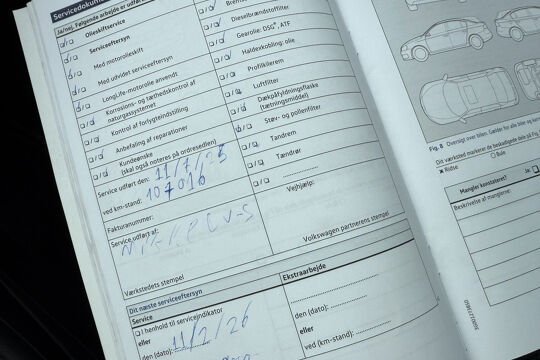 Servicedokum
Ja/nej. Følgende arbejde er udført
Olieskiftservice
Serviceeftersyn
Med motorolieskift
Med udvidet serviceeftersyn
LongLife-motorolie anvendt
Korrosions- og tæthedskontrol af
naturgassystemet
Kontrol af forlygteindstilling
Anbefaling af reparationer
Kundeønske
(skal også noteres på ordresedlen)
Service udført den: 11/7/25
ved km-stand: 107016
Fakturanummer:
Service udført af:
Værkstedets stempel
Brems
Dieselbrændstoffilter
Gearolie: DSG®, ATF
Haldexkobling: olie
Profilkilerem
Luftfilter
Dækpåfyldningsflaske
(tætningsmiddel)
Støv- og pollenfilter
Tandrem
Tændrør
Vejhjælp:
Volkswagen partnerens stempel
Dit næste serviceeftersyn
Service
I henhold til serviceindikator
eller
den (dato): 11/2/26
Ekstraarbejde
den (dato):
eller
ved (km-stand):
Fig. 8 Oversigt over bilen. Gælder for alle biler og
Dit værksted markerer de beskadigede dele på Fig.
x Ridse o Bule
Mangler konstateret? Ja:
Beskrivelse af manglerne: